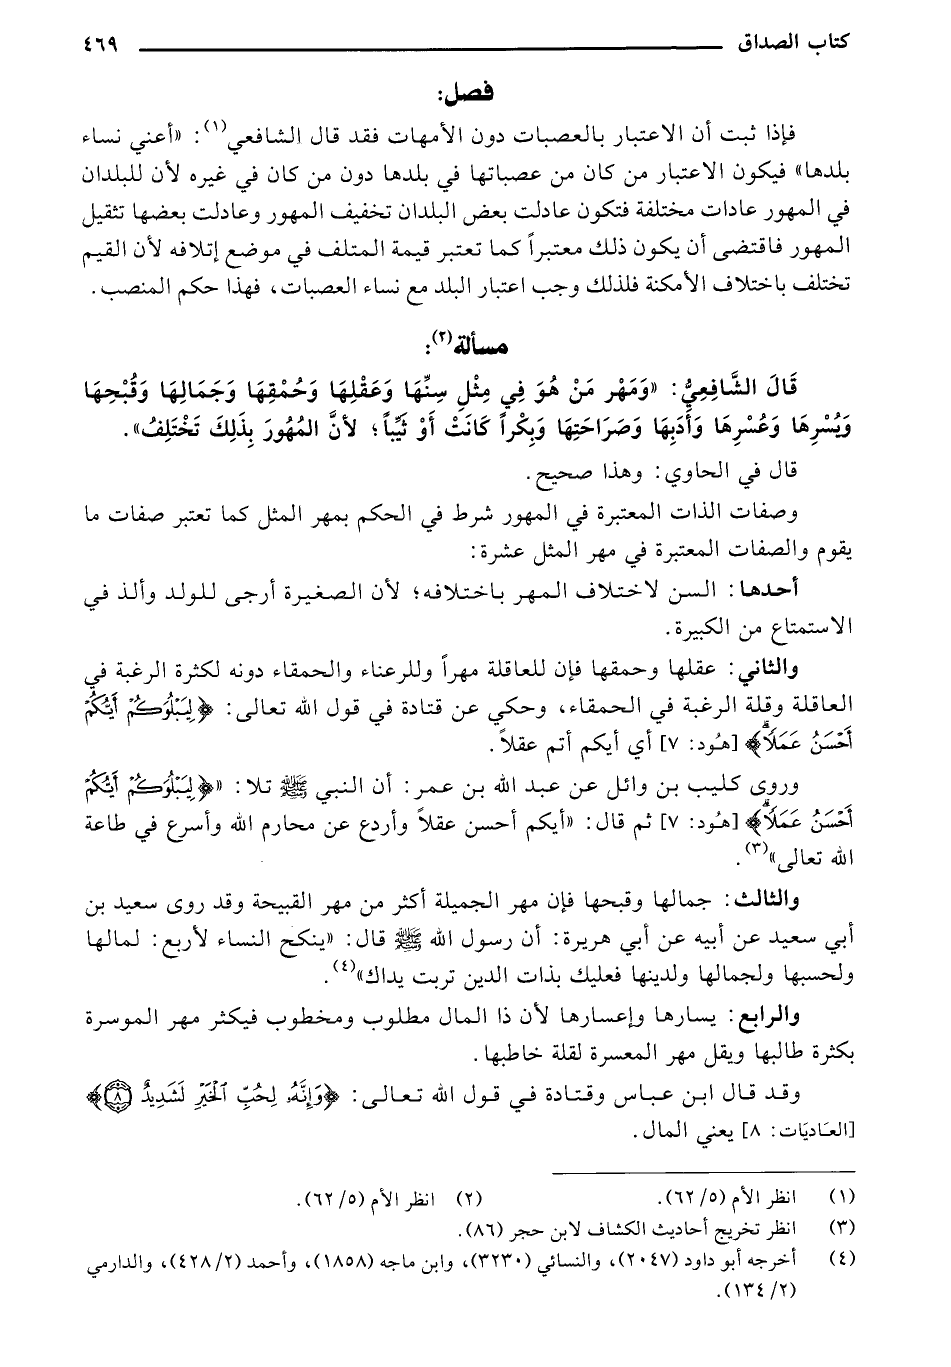 كتاب الصداق ٤٦٩
فصل:
فإذا ثبت أن الاعتبار بالعصبات دون الأمهات فقد قال الشافعي(١): «أعني نساء
بلدها» فيكون الاعتبار من كان من عصباتها في بلدها دون من كان في غيره لأن للبلدان
في المهور عادات مختلفة فتكون عادلت بعض البلدان تخفيف المهور وعادلت بعضها تثقيل
المهور فاقتضى أن يكون ذلك معتبراً كما تعتبر قيمة المتلف في موضع إتلافه لأن القيم
تختلف باختلاف الأمكنة فلذلك وجب اعتبار البلد مع نساء العصبات، فهذا حكم المنصب.
مسألة(٢):
قَالَ الشَّافِعِيُّ: «وَمَهْر مَنْ هُوَ فِي مِثْلِ سِنِّهَا وَعَقْلِهَا وَحُمْقِهَا وَجَمَالِهَا وَقُبْحِهَا
وَيُسْرِهَا وَعُسْرِهَا وَأَدَبِهَا وَصَرَاحَتِهَا وَبِكْراً كَانَتْ أَوْ ثَيِّباً؛ لأنَّ المُهُورَ بِذَلِكَ تَخْتَلِفُ».
قال في الحاوي: وهذا صحيح.
وصفات الذات المعتبرة في المهور شرط في الحكم بمهر المثل كما تعتبر صفات ما
يقوم والصفات المعتبرة في مهر المثل عشرة:
أحدها: السن لاختلاف المهر باختلافه؛ لأن الصغيرة أرجى للولد وألذ في
الاستمتاع من الكبيرة.
والثاني: عقلها وحمقها فإن للعاقلة مهراً وللرعناء والحمقاء دونه لكثرة الرغبة في
العاقلة وقلة الرغبة في الحمقاء، وحكي عن قتادة في قول الله تعالى: ﴿لِيَبْلُوَكُمْ أَيُّكُمْ
أَحْسَنُ عَمَلًاۗ﴾ [هُود: ٧] أي أيكم أتم عقلاً.
وروى كليب بن وائل عن عبد الله بن عمر: أن النبي ﷺ تلا: «﴿لِيَبْلُوَكُمْ أَيُّكُمْ
أَحْسَنُ عَمَلًاۗ﴾ [هُود: ٧] ثم قال: «أيكم أحسن عقلاً وأردع عن محارم الله وأسرع في طاعة
الله تعالى»(٣).
والثالث: جمالها وقبحها فإن مهر الجميلة أكثر من مهر القبيحة وقد روى سعيد بن
أبي سعيد عن أبيه عن أبي هريرة: أن رسول الله ﷺ قال: «ينكح النساء لأربع: لمالها
ولحسبها ولجمالها ولدينها فعليك بذات الدين تربت يداك»(٤).
والرابع: يسارها وإعسارها لأن ذا المال مطلوب ومخطوب فيكثر مهر الموسرة
بكثرة طالبها ويقل مهر المعسرة لقلة خاطبها.
وقد قال ابن عباس وقتادة في قول الله تعالى: ﴿وَإِنَّهُۥ لِحُبِّ ٱلْخَيْرِ لَشَدِيدٌ ٨﴾
[العَاديَات: ٨] يعني المال.
(١) انظر الأم (٥/ ٦٢). (٢) انظر الأم (٥/ ٦٢).
(٣) انظر تخريج أحاديث الكشاف لابن حجر (٨٦).
(٤) أخرجه أبو داود (٢٠٤٧)، والنسائي (٣٢٣٠)، وابن ماجه (١٨٥٨)، وأحمد (٢/ ٤٢٨)، والدارمي
(٢/ ١٣٤).